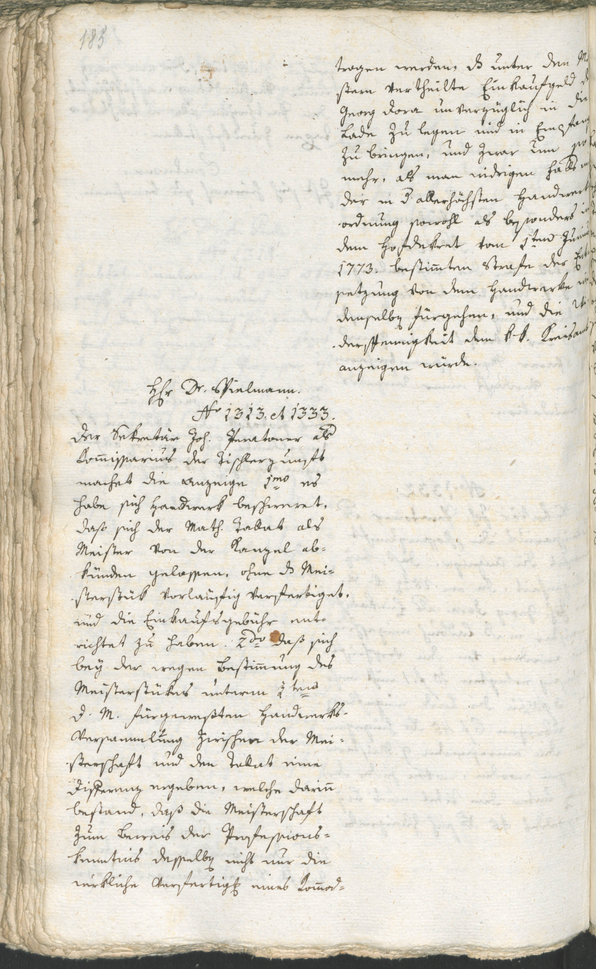 185
tragen werden, ds unter den Mei
stern vertheilte Einkaufgeld d
Georg Dora unverzüglich in die
Lade zu legen und in Empfang
zu bringen, und zwar um so
mehr, als man widrigen falls
der in d allerhöchsten Handwerks
ordnung sowohl als besonders in
dem Hofdekret vom 1ten Juni
1773. bestimmten Strafe der Ent
setzung von dem Handwerke
denselben fürgehen, und die Wi
derspenigkeit dem k. k. Kreisamt
anzeigen würde.
Hr Dr. Spielmann.
No 1313. et 1333.
Der Sekretär Joh. als
Commissarius der Tischlerzunft
machet die Anzeige 1mo es
habe sich Handwerk beschweret,
daß sich der Math. Tabat als
Meister von der Kanzel ab-
künden gelassen, ohne ds Mei-
sterstük vorläufig verfertiget,
und die Einkaufsgebühr ent-
richtet zu haben. 2do daß sich
bey der wegen Bestimmung des
Meisterstükes unterm
d. M. fürgewesten Handwerks-
Versammlung zwischen der Mei-
sterschaft und den Tabat eine
Differenz ergeben, welche darin
bestand, daß die Meisterschaft
zum Beweis der Professions-
kenntnis desselben nicht nur die
wirkliche Verfertigg eines Comod-